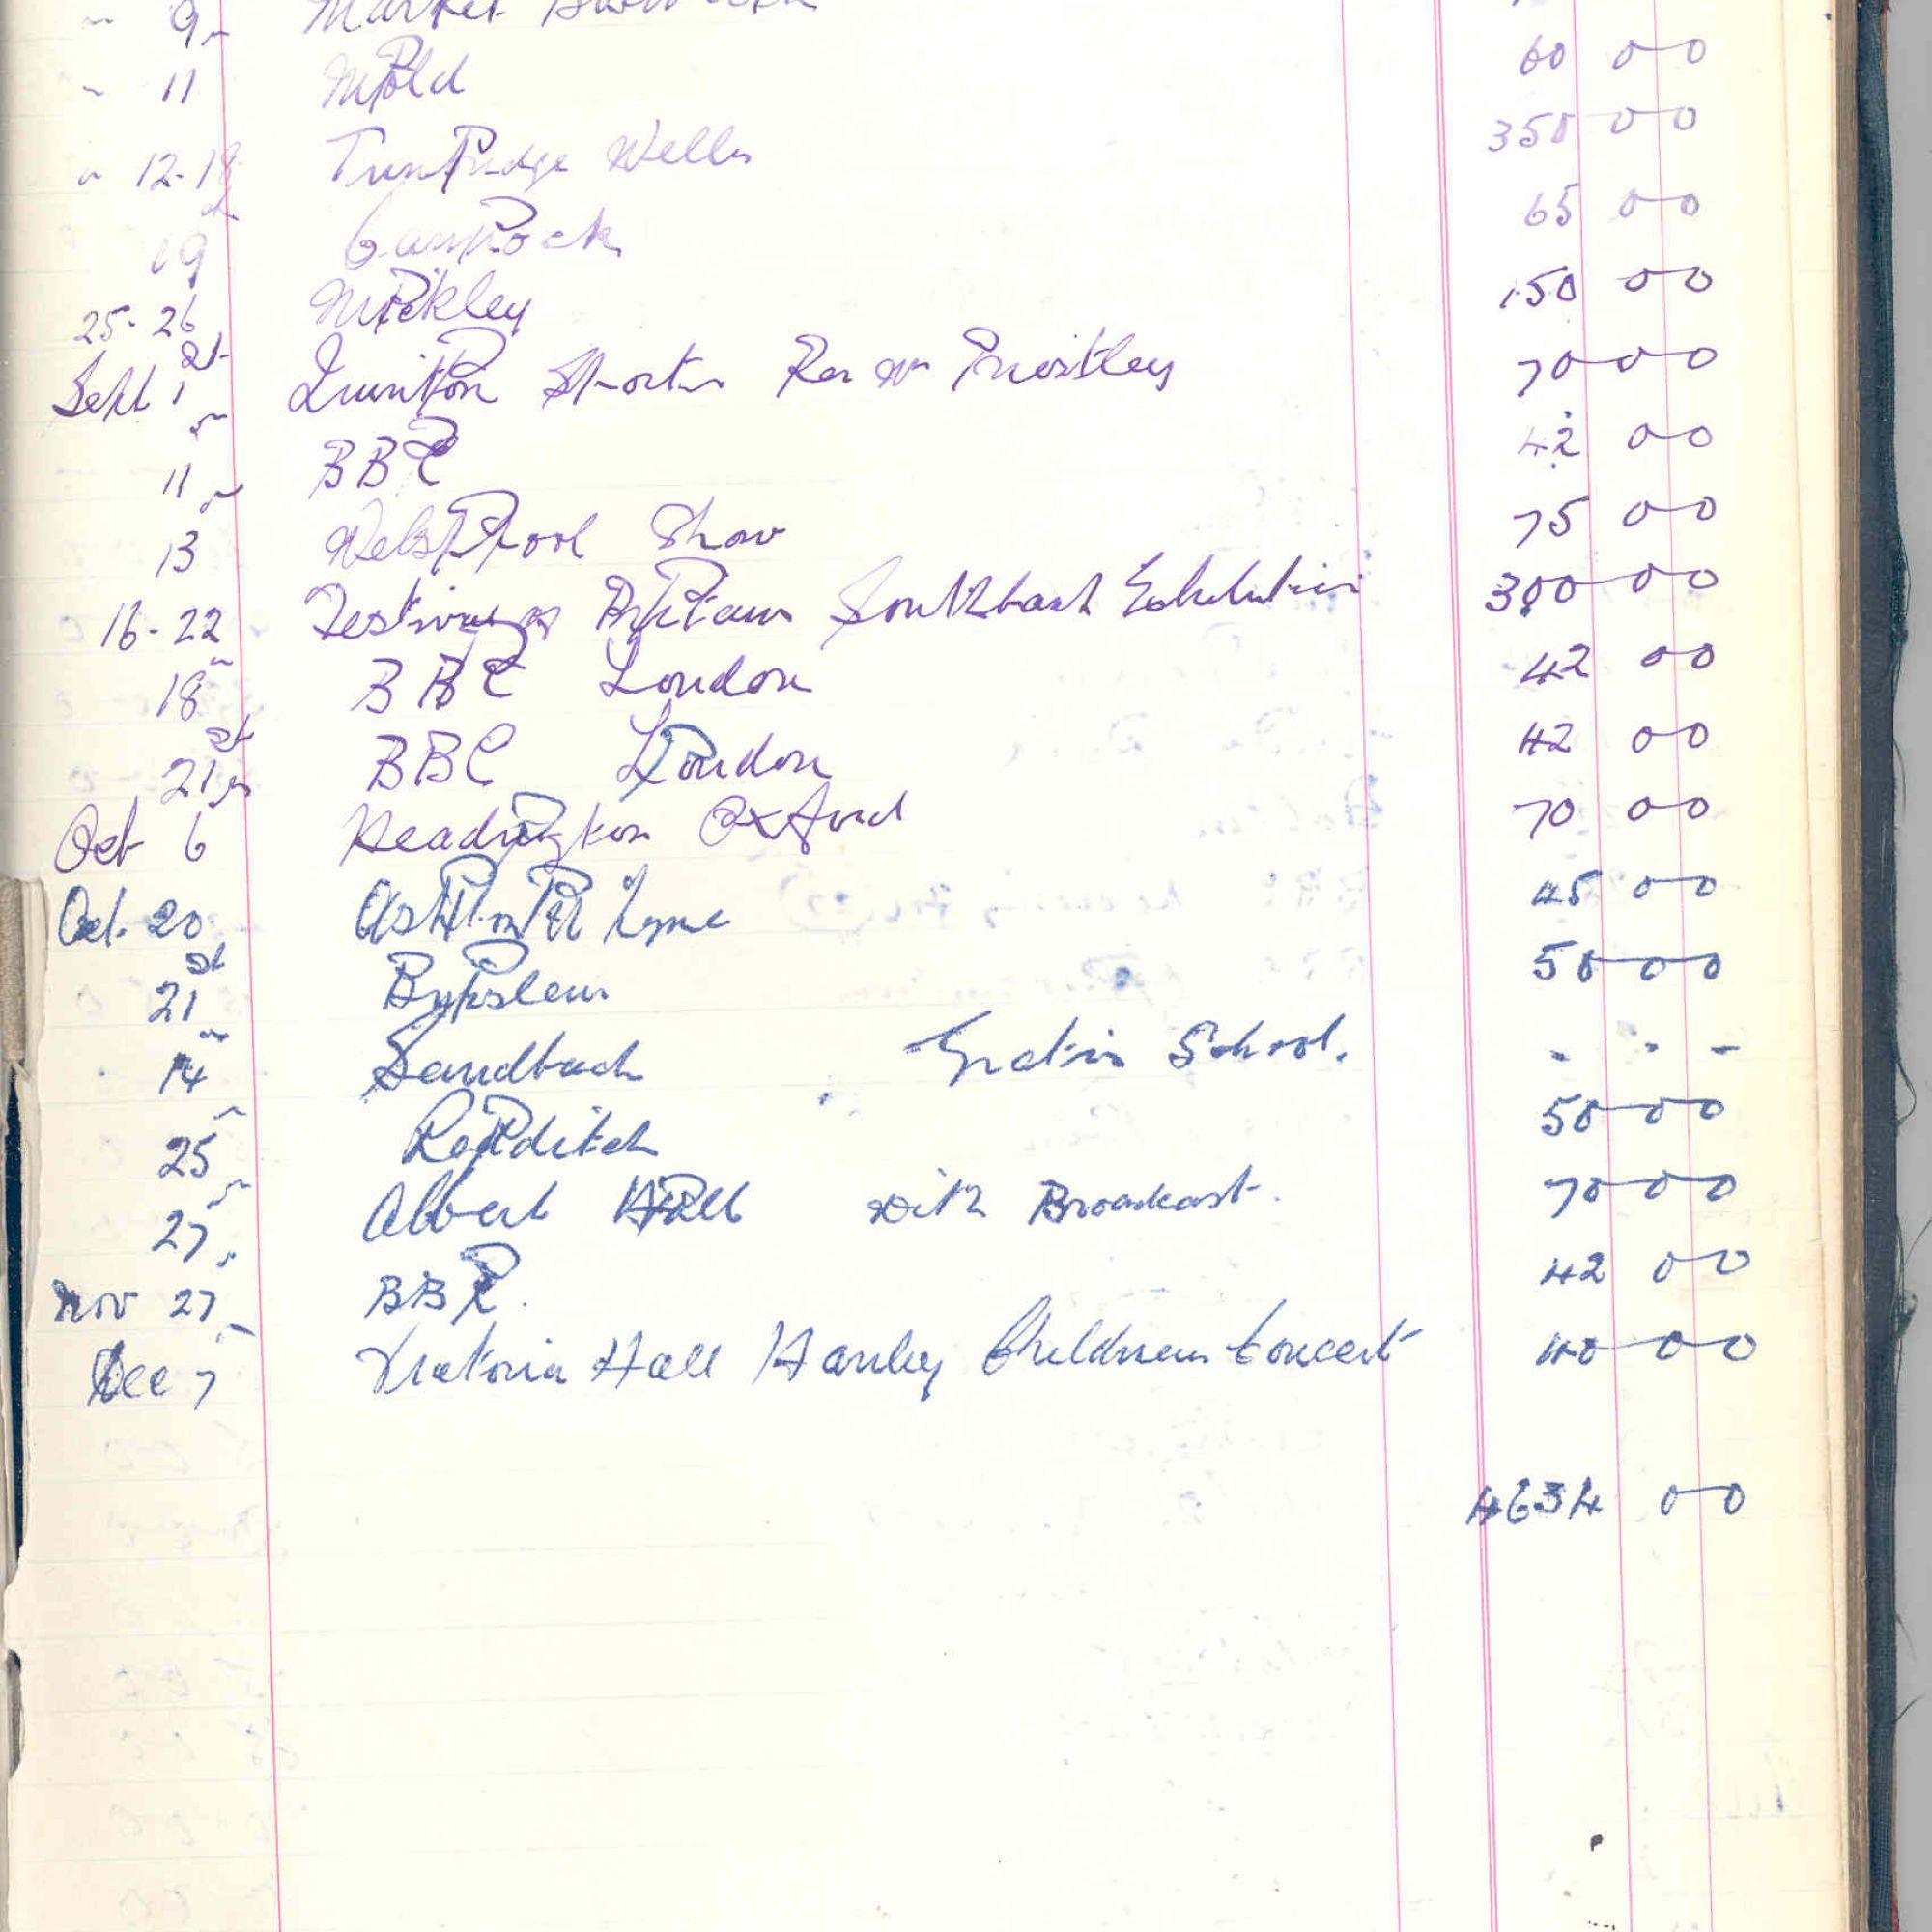 " 9th Market Bosworth
" 11 Mold 60 0 0
" 12-18 Tunbridge Wells 350 0 0
19th Cannock 65 0 0
25-26 Mickley 150 0 0
Sept 1st Quinton Sports Rev Wm Priestley 70 0 0
11th BBC 42 0 0
13th Welshpool Show 75 0 0
16-22 Festival of Britain Southbank Exhibition 300 0 0
18th BBC London 42 0 0
21st BBC London 42 0 0
Oct 6th Headington Oxford 70 0 0
Oct. 20 Ashton U Lyne 45 0 0
21st Burslem 50 0 0
14th Sandbach School. - - -
25th Redditch 50 0 0
27th Albert Hall with Broadcast. 70 0 0
Nov 27th BBC. 42 0 0
Dec 7th Victoria Hall Hanley Childrens Concert 40 0 0
4634 0 0